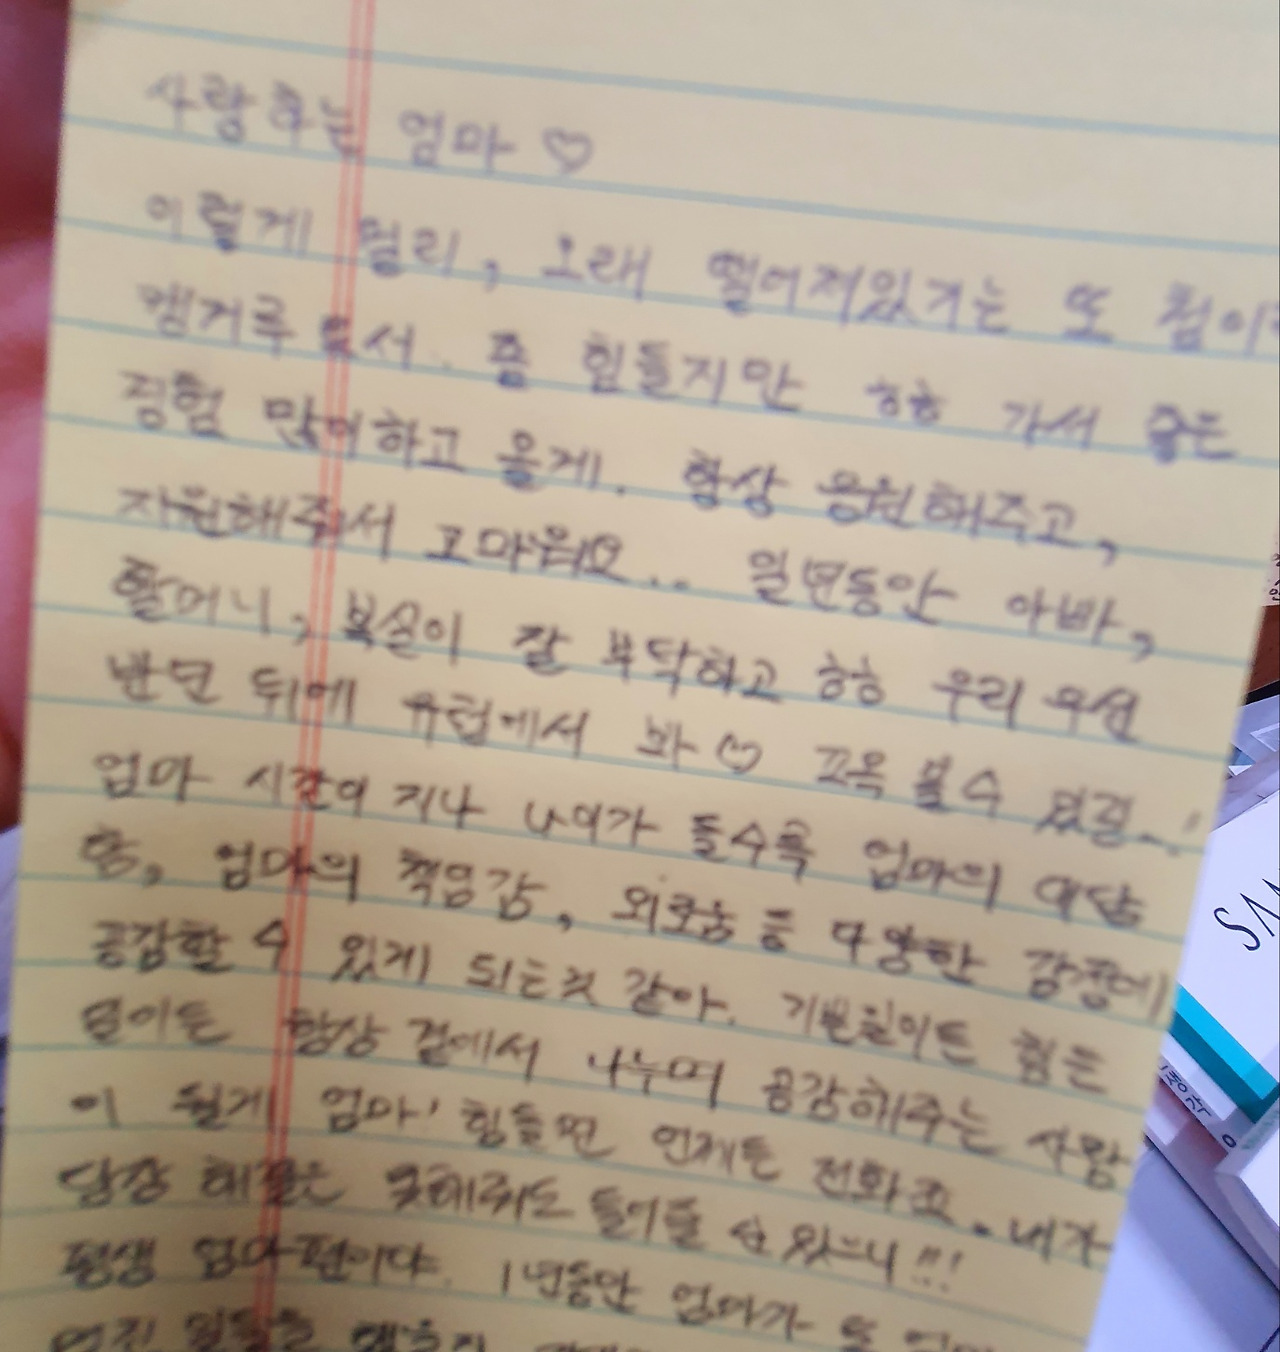 사랑하는 엄마 ♡
이렇게 멀리, 오래 떨어져있기는 또 첨이
캥거루 로서.. 좀 힘들지만 ㅎㅎ 가서 좋은
경험 많이하고 올게. 항상 응원해주고,
지원해줘서 고마워요.. 일년동안 아빠,
할머니, 복실이 잘 부탁하고 ㅎㅎ 우리 우선
반년 뒤에 유럽에서 봐 ♡ 꼬옥 볼수 있길~!
엄마 시간이 지나 나이가 들수록 엄마의
엄마의 책임감, 외로움 등 다양한 감정에
공감할 수 있게 되는것 같아. 기쁜일이든 힘든
일이든 항상 곁에서 나누며 공감해주는 사람
이 될게 엄마! 힘들면 언제든 전화죠. 내가
당장 해결은 못해줘도 들어줄 순 있으니!!!
평생 엄마편이야. 1년동안 엄마가 또
멋진 일들을